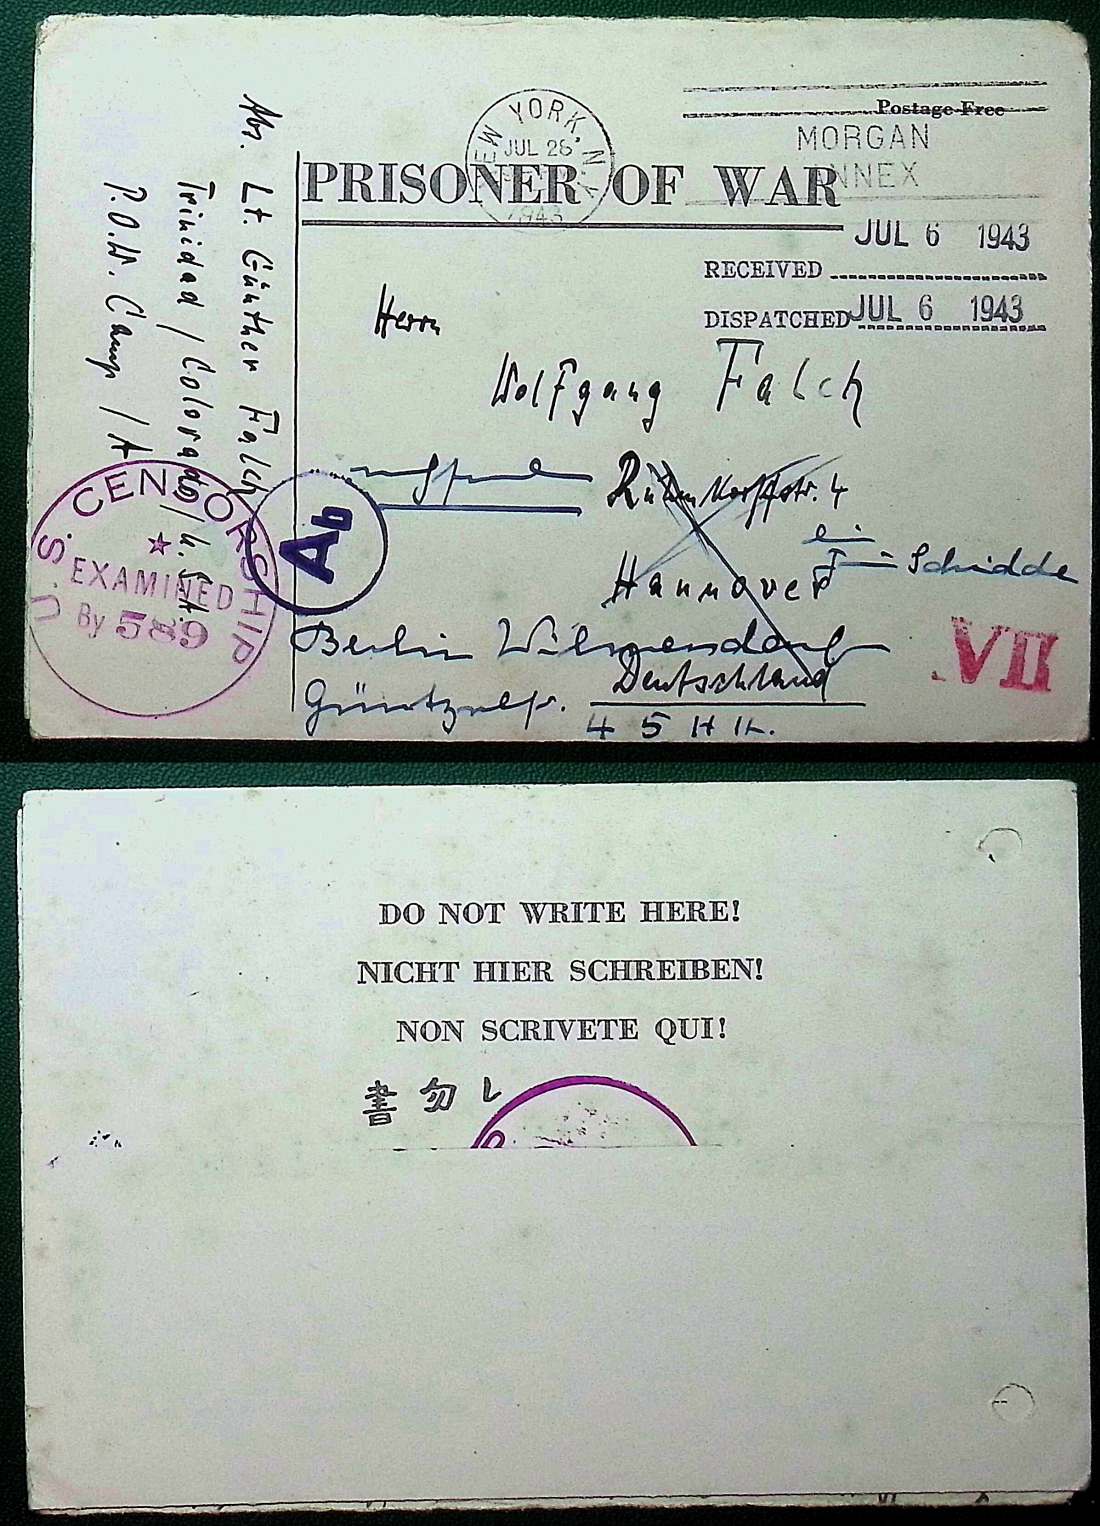 Postage Free
NEW YORK, N.Y.
JUL 28
1943
MORGAN
ANNEX
PRISONER OF WAR
JUL 6 1943
RECEIVED
JUL 6 1943
DISPATCHED
Herrn
Wolfgang Falch
4
bei
Schidde
Hannover
Berlin Wilmersdorf
Deutschland
Güntzelstr.
45 II
VII
Abs. Lt. Günther Falch
Trinidad / Colorado / U.S.A.
P.O.W. Camp / A
U.S. CENSORSHIP
EXAMINED
By 589
Ab
DO NOT WRITE HERE!
NICHT HIER SCHREIBEN!
NON SCRIVETE QUI!
書勿レ